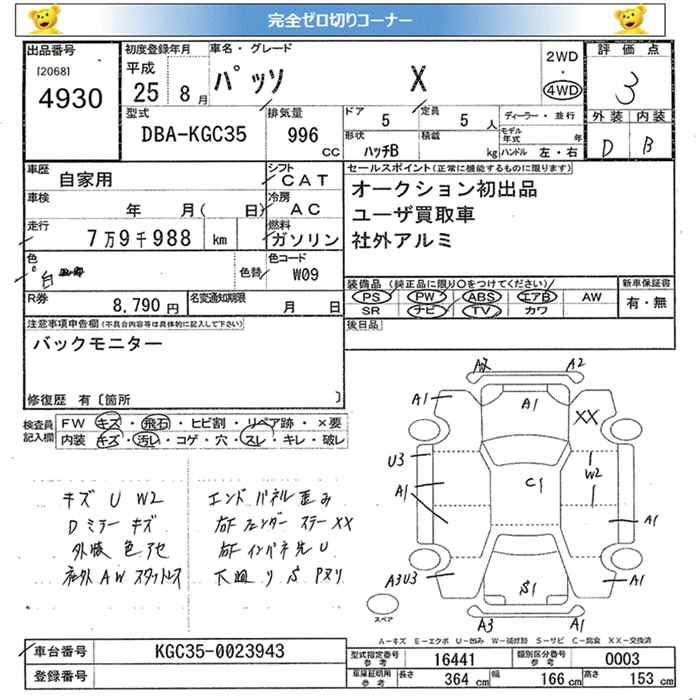 完全ゼロ切りコーナー
出品番号 初度登録年月 車名・グレード 評価点
[2068] 平成 パッソ X 2WD・4WD 3
4930 25 8月
型式 排気量 ドア 定員 ディーラー・並行 外装 内装
DBA-KGC35 996 CC 5 5人 モデル年式 年 D B
形状 積載 ハンドル 左・右
ハッチB kg
車歴 自家用 シフト CAT セールスポイント(正常に機能するものに限ります)
車検 年 月( 日) 冷房 AC オークション初出品
走行 7万9千988 km 燃料 ガソリン ユーザ買取車
社外アルミ
色 白 色替 色コード W09 装備品(純正品に限り○をつけてください) 新車保証書
PS PW ABS エアB AW 有・無
R券 8,790円 名変通知期限 月 日 SR ナビ TV カワ
注意事項申告欄(不具合内容等は具体的に記入して下さい) 後日品
バックモニター
修復歴 有〔箇所 〕
検査員記入欄 FW キズ・飛石・ヒビ割・リペア跡・×要
内装 キズ・汚レ・コゲ・穴・スレ・キレ・破レ
キズ U W2 エンドパネル歪み
Dミラーキズ 右Fフェンダーステー XX
外装色アセ 右Fインパネ先U
社外AW
A2
A1 A1 XX
U3 W2
A1 C1
A1
A3U3 S1 A1
スペア
A3 A1
A-キズ E-エクボ U-凹み W-補修跡 S-サビ C-腐食 XX-交換済
車台番号 KGC35-0023943 型式指定番号 参考 16441 類別区分番号 参考 0003
登録番号 車庫証明用 参考 長さ 364 cm 幅 166 cm 高さ 153 cm